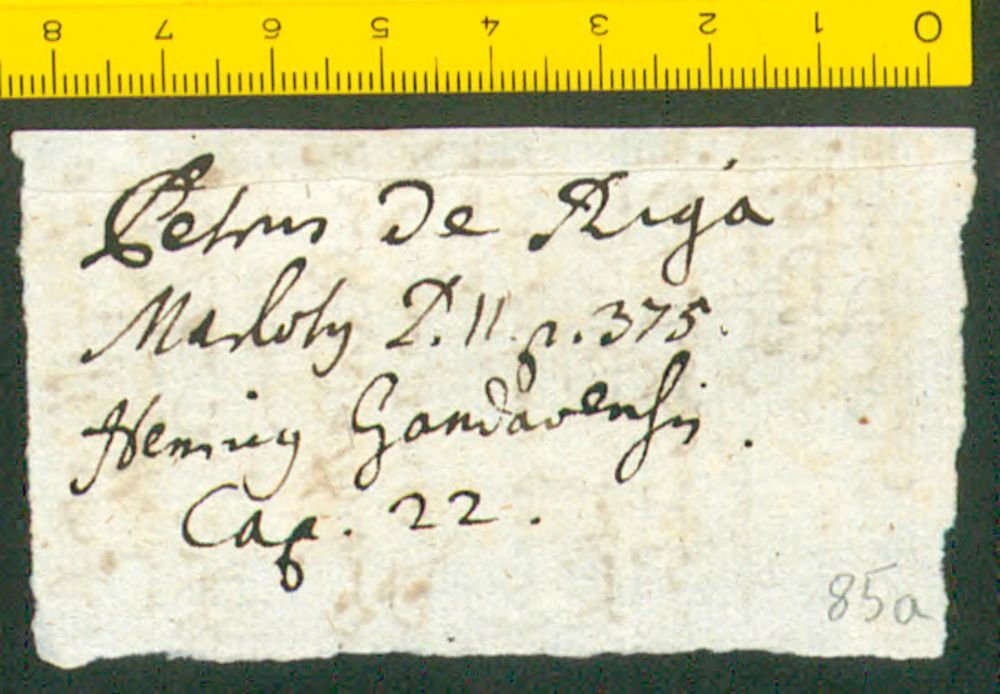 8 7 6 5 4 3 2 1 0
Petrus de Riga
Marloty P. II. p. 375.
Henricy Gandavensis.
Cap. 22.
85a